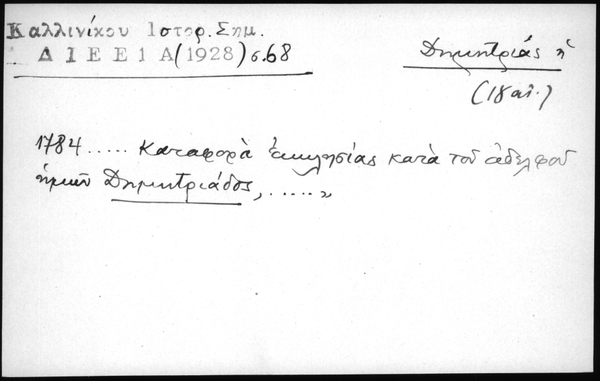 Καλλινίκου Ιστορ. Σημ.
ΔΙΕΕ 1 Α (1928) σ.68
Δημητριάς ἡ
(18 αἰ.)
1784 ..... καταφορὰ ἐκκλησίας κατὰ τοῦ ἀδελφοῦ
ἡμῶν Δημητριάδος, ..... „